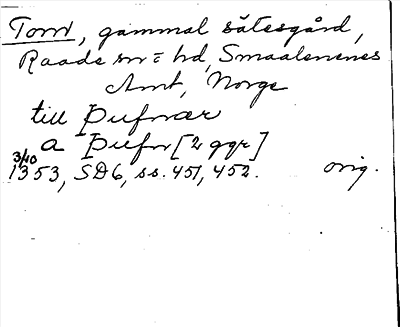 Tomt, gammal sätesgård,
Raade sn = hd, Smaalenenes
Amt, Norge
till Þufnær
a Þufn [2 ggr]
3/10
1353, SD6, ss. 451, 452. orig.